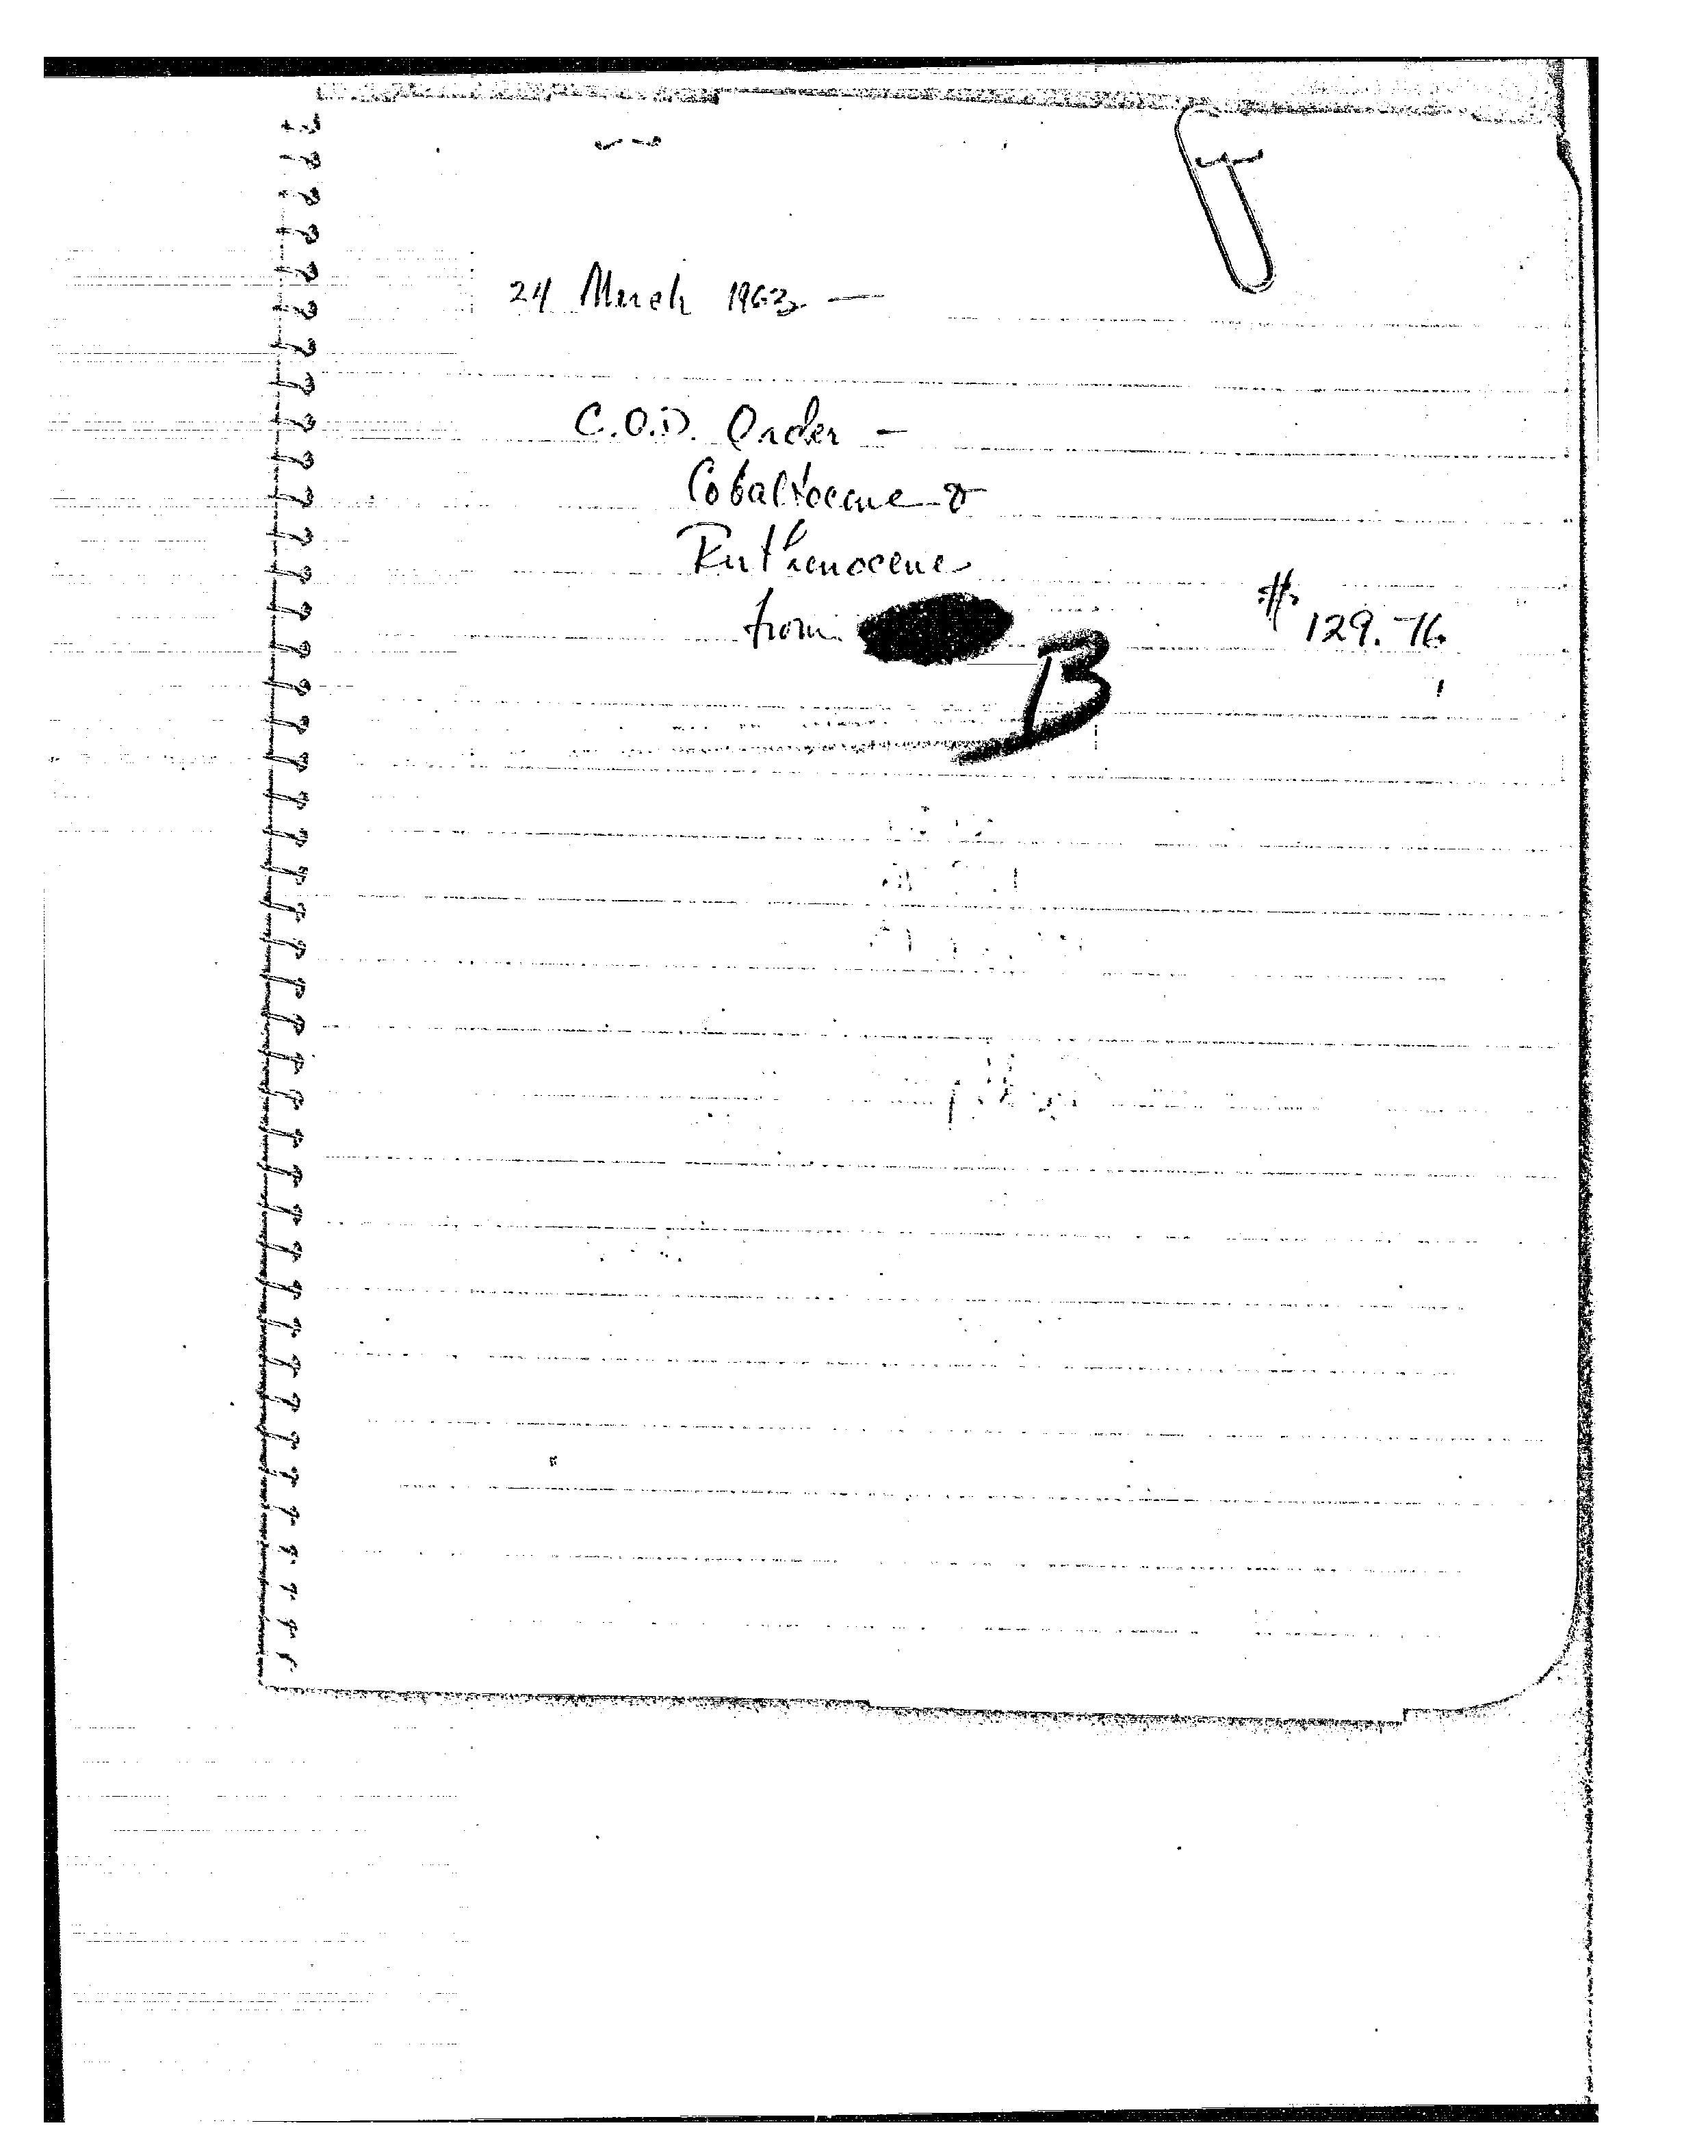 24 March 1963 —
C.O.D. Order —
Cobaltocene &
Ruthenocene
from B
$129.76